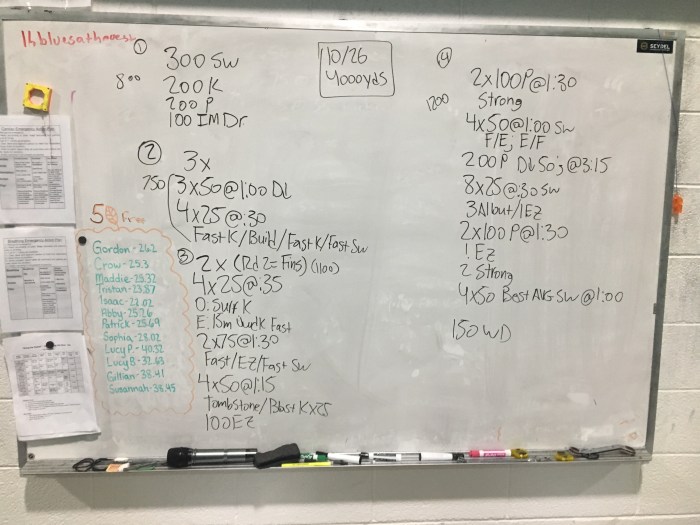 10/26
4000yds
①
300 SW
800
200 K
200 P
100 IM Dr
②
3x
750
3x50@1:00 DL
4x25@:30
Fast K/Build/Fast K/Fast SW
③ 2x (Rd 2= Fins) (1100)
4x25@:35
O. Surf K
E. 15m UwdK Fast
2x75@1:30
Fast/EZ/Fast SW
4x50@1:15
Tombstone/Blast Kx25
100EZ
50 Free
Gordon-26.2
Crow-25.3
Maddie-25.32
Tristan-23.87
Isaac-22.02
Abby-25.26
Patrick-25.69
Sophia-28.02
Lucy P.-40.52
Lucy B-32.63
Gillian-38.41
Susannah-38.45
④
2x100P@1:30
Strong
1200
4x50@1:00 SW
F/E; E/F
200P DL50;@3:15
8x25@:30 SW
3 All out/1EZ
2x100P@1:30
1 EZ
2 Strong
4x50 Best AVG SW @1:00
150 WD
SEYDEL